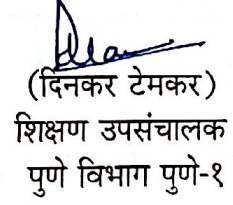 (दिनकर टेमकर)
शिक्षण उपसंचालक
पुणे विभाग पुणे-१